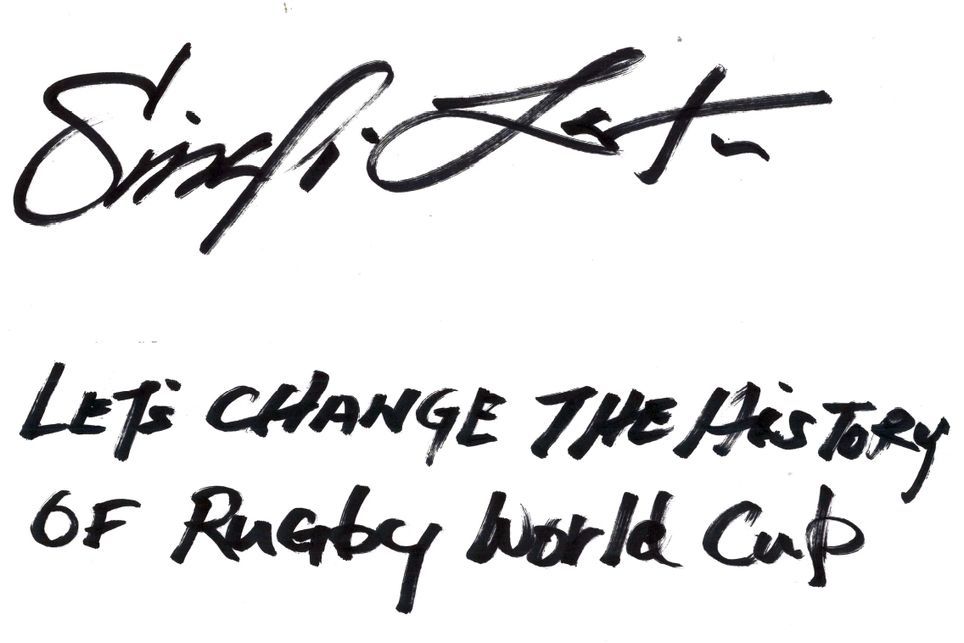 LET'S CHANGE THE HISTORY
OF Rugby World Cup